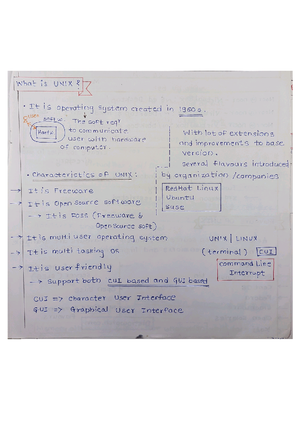 What is UNIX ?
• It is operating system created in 1960s.
soft w.
The soft reqd
to communicate
user with hardware
of computer.
Hard w
With lot of extensions
and improvements to base
version.
several flavours introduced
by organization /companies
RedHat Linux
Ubuntu
• Characteristics of UNIX:
→ It is Freeware
→ It is Open Source Software
→ It is FOSS (Freeware &
Open Source Soft)
→ It is multi user operating system
→ It is multi tasking OS
→ It is user friendly
→ Support both CUI based and GUI based
CUI => Character User Interface
GUI => Graphical User Interface
UNIX | LINUX
(terminal) CUI
command Line
Interrupt